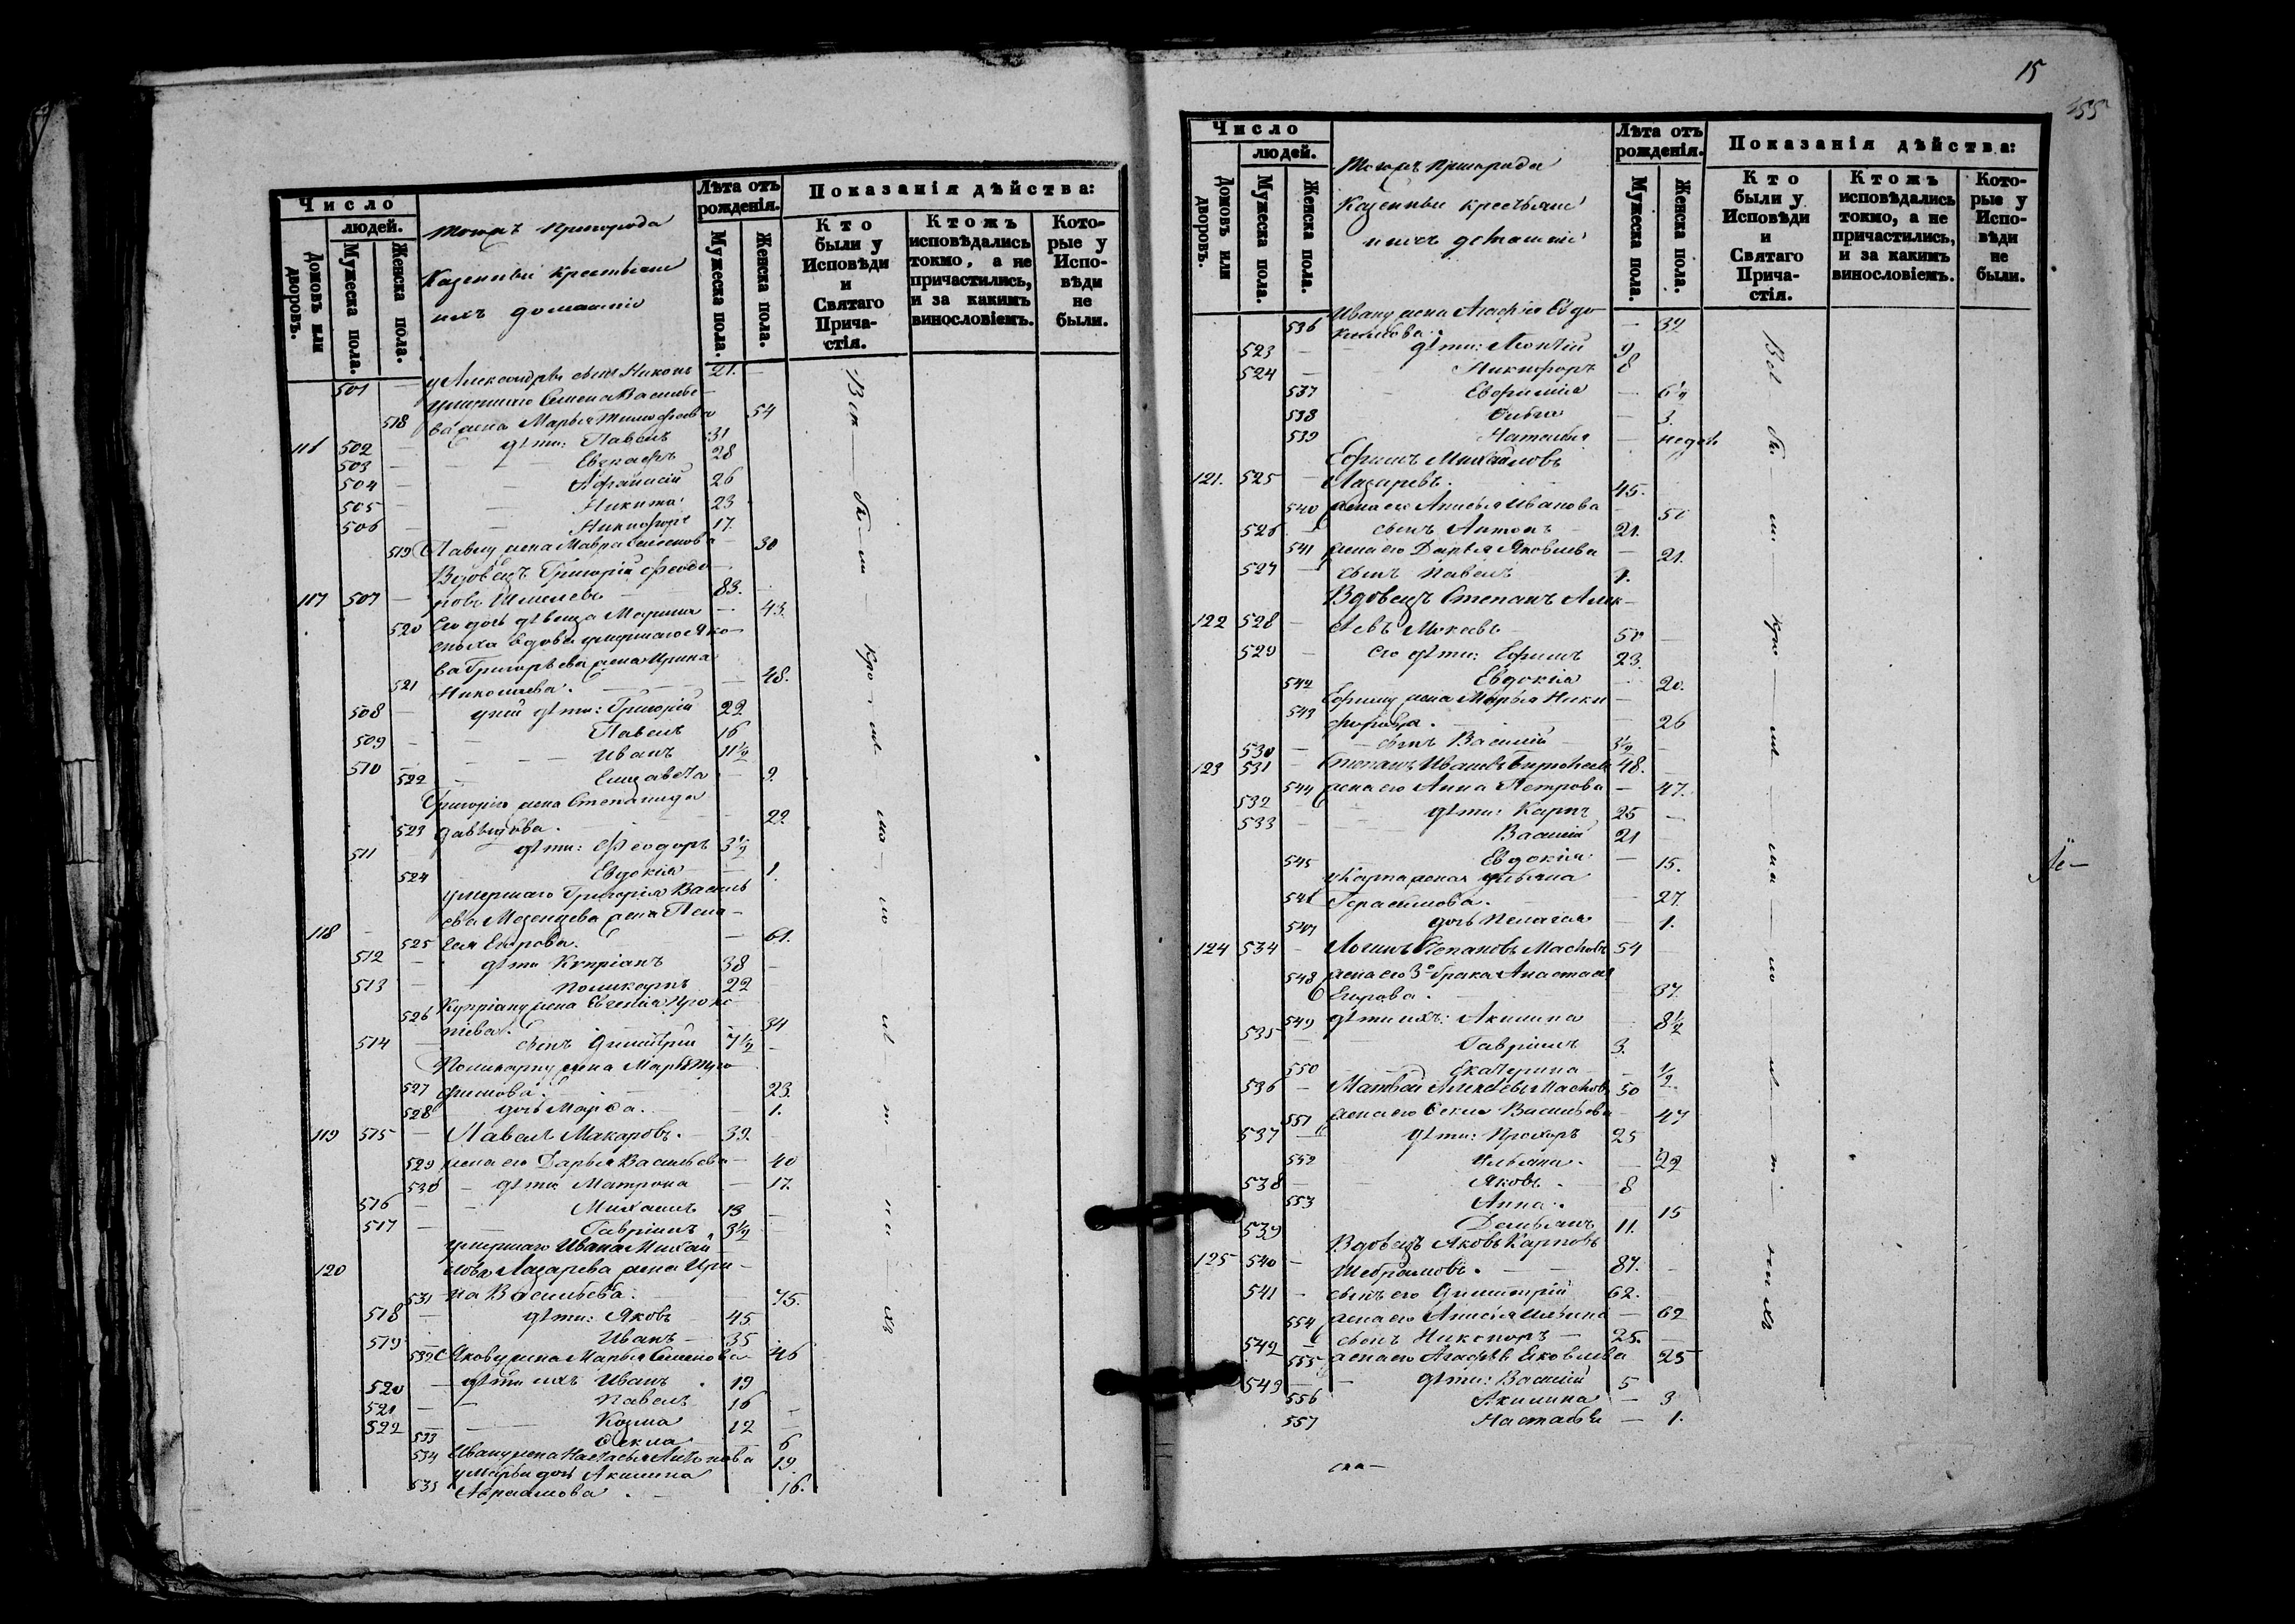 Число
людей.
Домовъ или дворовъ.
Мужеска пола.
Женска пола.
тогожъ пригорода
Казенныи крестьяне
ихъ домашніе
Лѣта отъ рожденія.
Мужеска пола.
Женска пола.
Показанія дѣйства:
Кто были у Исповѣди и Святаго Причастія.
Ктожъ исповѣдались токмо, а не причастились, и за какимъ винословіемъ.
Которые у Исповѣди не были.
501 — у Александры сынъ Никонъ 21. —
умершаго Семена Василье-
518 ва жена Марья Тимофеева 54
116 502 — дѣти: Павелъ 31
503 — Евграфъ 28
504 — Афанасій 26
505 — Никита 23
506 — Никифоръ 17.
519 Павлу жена Мавра Семенова — 30
Вдовецъ Григорій Феодо-
117 507 — ровъ 83.
520 Его дочь дѣвица Марина — 43.
сноха вдова умершаго Яко-
ва Григорьева жена Ирина
521 Николаева. — 48.
508 — у ней дѣти: Григорій 22
509 — Павелъ 16
510 — Иванъ 11½
522 — Елизавета — 9.
Григорію жена Степанида
523 Давыдова. — 22
511 дѣти: Феодоръ 3½
524 Евдокія — 1.
умершаго Григорія Василь
ева Мезенцева жена Пела-
118 — 525 гея Егорова. — 61.
512 — дѣти Купріанъ 38 —
513 — Поликарпъ 22 —
526 Купріану жена Евгенія Проко
піева. — 34
514 — сынъ Димитрій 7½ —
Поликарпу жена Марья Тро
527 фимова. — 23.
528 дочь Марѳа. — 1.
119 515 — Павелъ Макаровъ. — 39. —
529 жена его Дарья Васильева — 40
530 — дѣти Матрона — 17.
516 — Михаилъ 13 —
517 — Гавріилъ 3½ —
умершаго Ивана Михай-
120 лова Лазарева жена Ири-
531 на Васильева. — 75.
518 — дѣти: Яковъ 45
519 — Иванъ — 35
532 Якову жена Марья Семенова — 46
520 — дѣти ихъ Иванъ 19
521 — Павелъ 16 —
522 — Козма 12 —
533 Ѳекла 6
534 Ивану жена Настасья Антонова 19.
у Марьи дочь Акилина
535 Авраамова. — 16.
15
355
Число
людей.
Домовъ или дворовъ.
Мужеска пола.
Женска пола.
Тогожъ пригорода
Казенныи крестьяне
ихъ домашніе
Лѣта отъ рожденія.
Мужеска пола.
Женска пола.
Показанія дѣйства:
Кто были у Исповѣди и Святаго Причастія.
Ктожъ исповѣдались токмо, а не причастились, и за какимъ винословіемъ.
Которые у Исповѣди не были.
Ивану жена Агафія Евдо-
536 кимова. — 32
523 — дѣти: Леонтій 9
524 — Никифоръ 8
537 Евфимія — 6½
538 — 3.
539 Наталья — недѣль
Ефимъ Михайловъ
121. 525 — Лазаревъ. 45.
540 жена его Анисья Иванова — 50
526 — сынъ Антонъ 21.
541 жена его Дарья Яковлева — 21.
527 — сынъ Павелъ 1.
Вдовецъ Степанъ Алек-
122 528 — сѣевъ Мокеевъ 50 —
529 — его дѣти: Ефимъ 23.
542 Евдокія — 20.
Ефиму жена Марья Ники
543 форова. — 26
530 — сынъ Василій 3½ —
123 531 — Степанъ Ивановъ 48.
544 жена его Анна Петрова — 47.
532 дѣти: Карпъ 25 —
533 Василій 21
545 Евдокія — 15.
у Карпа жена Ульяна
546 Герасимова. — 27.
547 дочь Пелагея — 1.
124 534 — Логинъ Степановъ Масловъ 54
548 жена его 3го брака Анастасія
Егорова. — 37.
549 дѣти ихъ: Акилина 8½
535 — Гавріилъ 3.
550 — Екатерина ½
536 — Матвей Алексѣевъ Масловъ 50 —
551 жена его Ѳекла Васильева — 47
537 — дѣти: Прохоръ 25
552 Ульяна. — 22
538 — Яковъ. — 8
553 Анна. — 15
539 Демьянъ 11.
Вдовецъ Яковъ Карповъ
125 540 — 87. —
541 — сынъ его Димитрій 62.
554 жена его Анисія Ильина — 62
542 — сынъ Никаноръ — 25. —
555 жена его Агафья Яковлева 25
543 — дѣти: Василій 5
556 Акилина — 3
557 Настасья — 1.